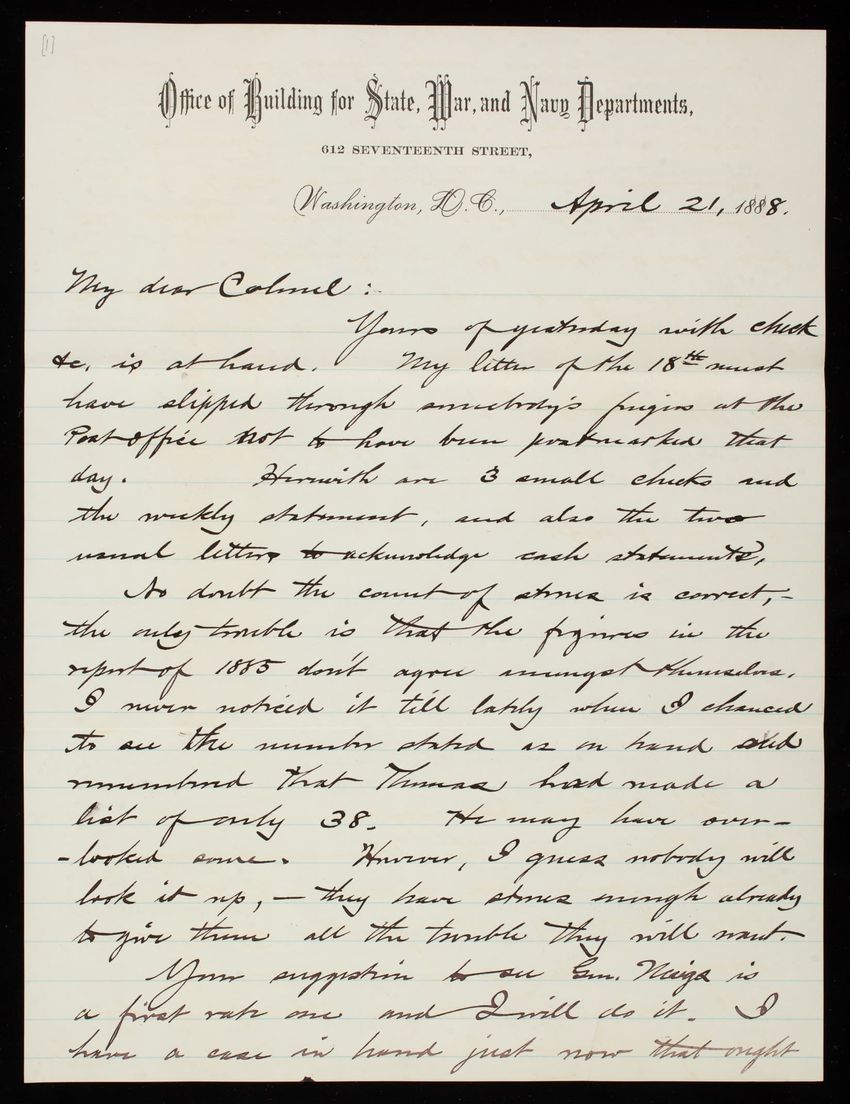 [1]
Office of Building for State, War, and Navy Departments,
612 SEVENTEENTH STREET,
Washington, D.C., April 21, 1888.
My dear Colonel :
Yours of yesterday with check
&c. is at hand. My letter of the 18th must
have slipped through somebody's fingers at the
Post office not to have been postmarked that
day. Herewith are 3 small checks and
the weekly statement, and also the two
usual letters to acknowledge cash statements.
No doubt the count of stones is correct,-
the only trouble is that the figures in the
report of 1885 don't agree amongst themselves.
I never noticed it till lately when I chanced
to see the number stated as on hand and
remembered that Thomas had made a
list of only 38. He may have over-
-looked some. However, I guess nobody will
look it up, - they have stones enough already
to give them all the trouble they will want.
Your suggestion to see Gen. Meigs is
a first rate one and I will do it. I
have a case in hand just now that ought